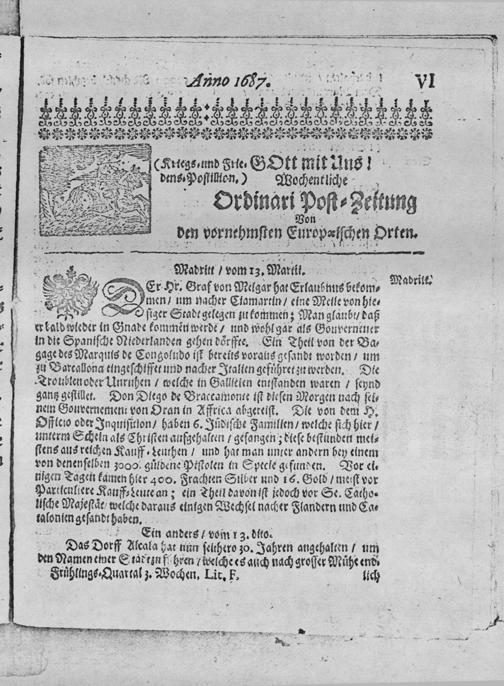 Anno 1687.
VI
(Kriegs- und Frie- GOtt mit Uns!
dens-Postillion,) Wochentliche
Ordinari Post-Zeitung
Von
den vornehmsten Europæischen Orten.
Madritt / vom 13. Martii.
Madritt.
DEr Hr. Graf von Melgar hat Erlaubnus bekom-
men / um nacher Clamartin / eine Meile von hie-
siger Stadt gelegen zu kommen; Man glaubt / daß
er bald wieder in Gnade kommen werde / und wohl gar als Gouverneur
in die Spanische Niederlanden gehen dörffte. Ein Theil von der Ba-
gage des Marquis de Congoludo ist bereits voraus gesandt worden / um
zu Barcallona eingeschifft und nacher Italien geführet zu werden. Die
Troublen oder Unruhen / welche in Gallicien entstanden waren / seynd
gantz gestillet. Don Diego de Braccamonte ist diesen Morgen nach sei-
nem Gouvernement von Oran in Affrica abgereist. Die von dem H.
Officio oder Inquisition / haben 6. Jüdische Familien / welche sich hier /
unterm Schein als Christen aufgehalten / gefangen; diese bestunden mei-
stens aus reichen Kauff-Leuthen / und hat man unter andern bey einem
von denenselben 3000. güldene Pistolen in Specie gefunden. Vor ei-
nigen Tagen kamen hier 400. Frachten Silber und 16. Gold / meist vor
Particuliere Kauff-Leute an; ein Theil davon ist jedoch vor Se. Catho-
lische Majestät / welche daraus einigen Wechsel nacher Flandern und Ca-
talonien gesandt haben.
Ein anders / vom 13. dito.
Das Dorff Alcala hat nun seithero 30. Jahren angehalten / um
den Namen einer Stadt zu führen / welche es auch nach grosser Mühe end-
Frühlings-Quartal 3. Wochen, Lit. F.
lich